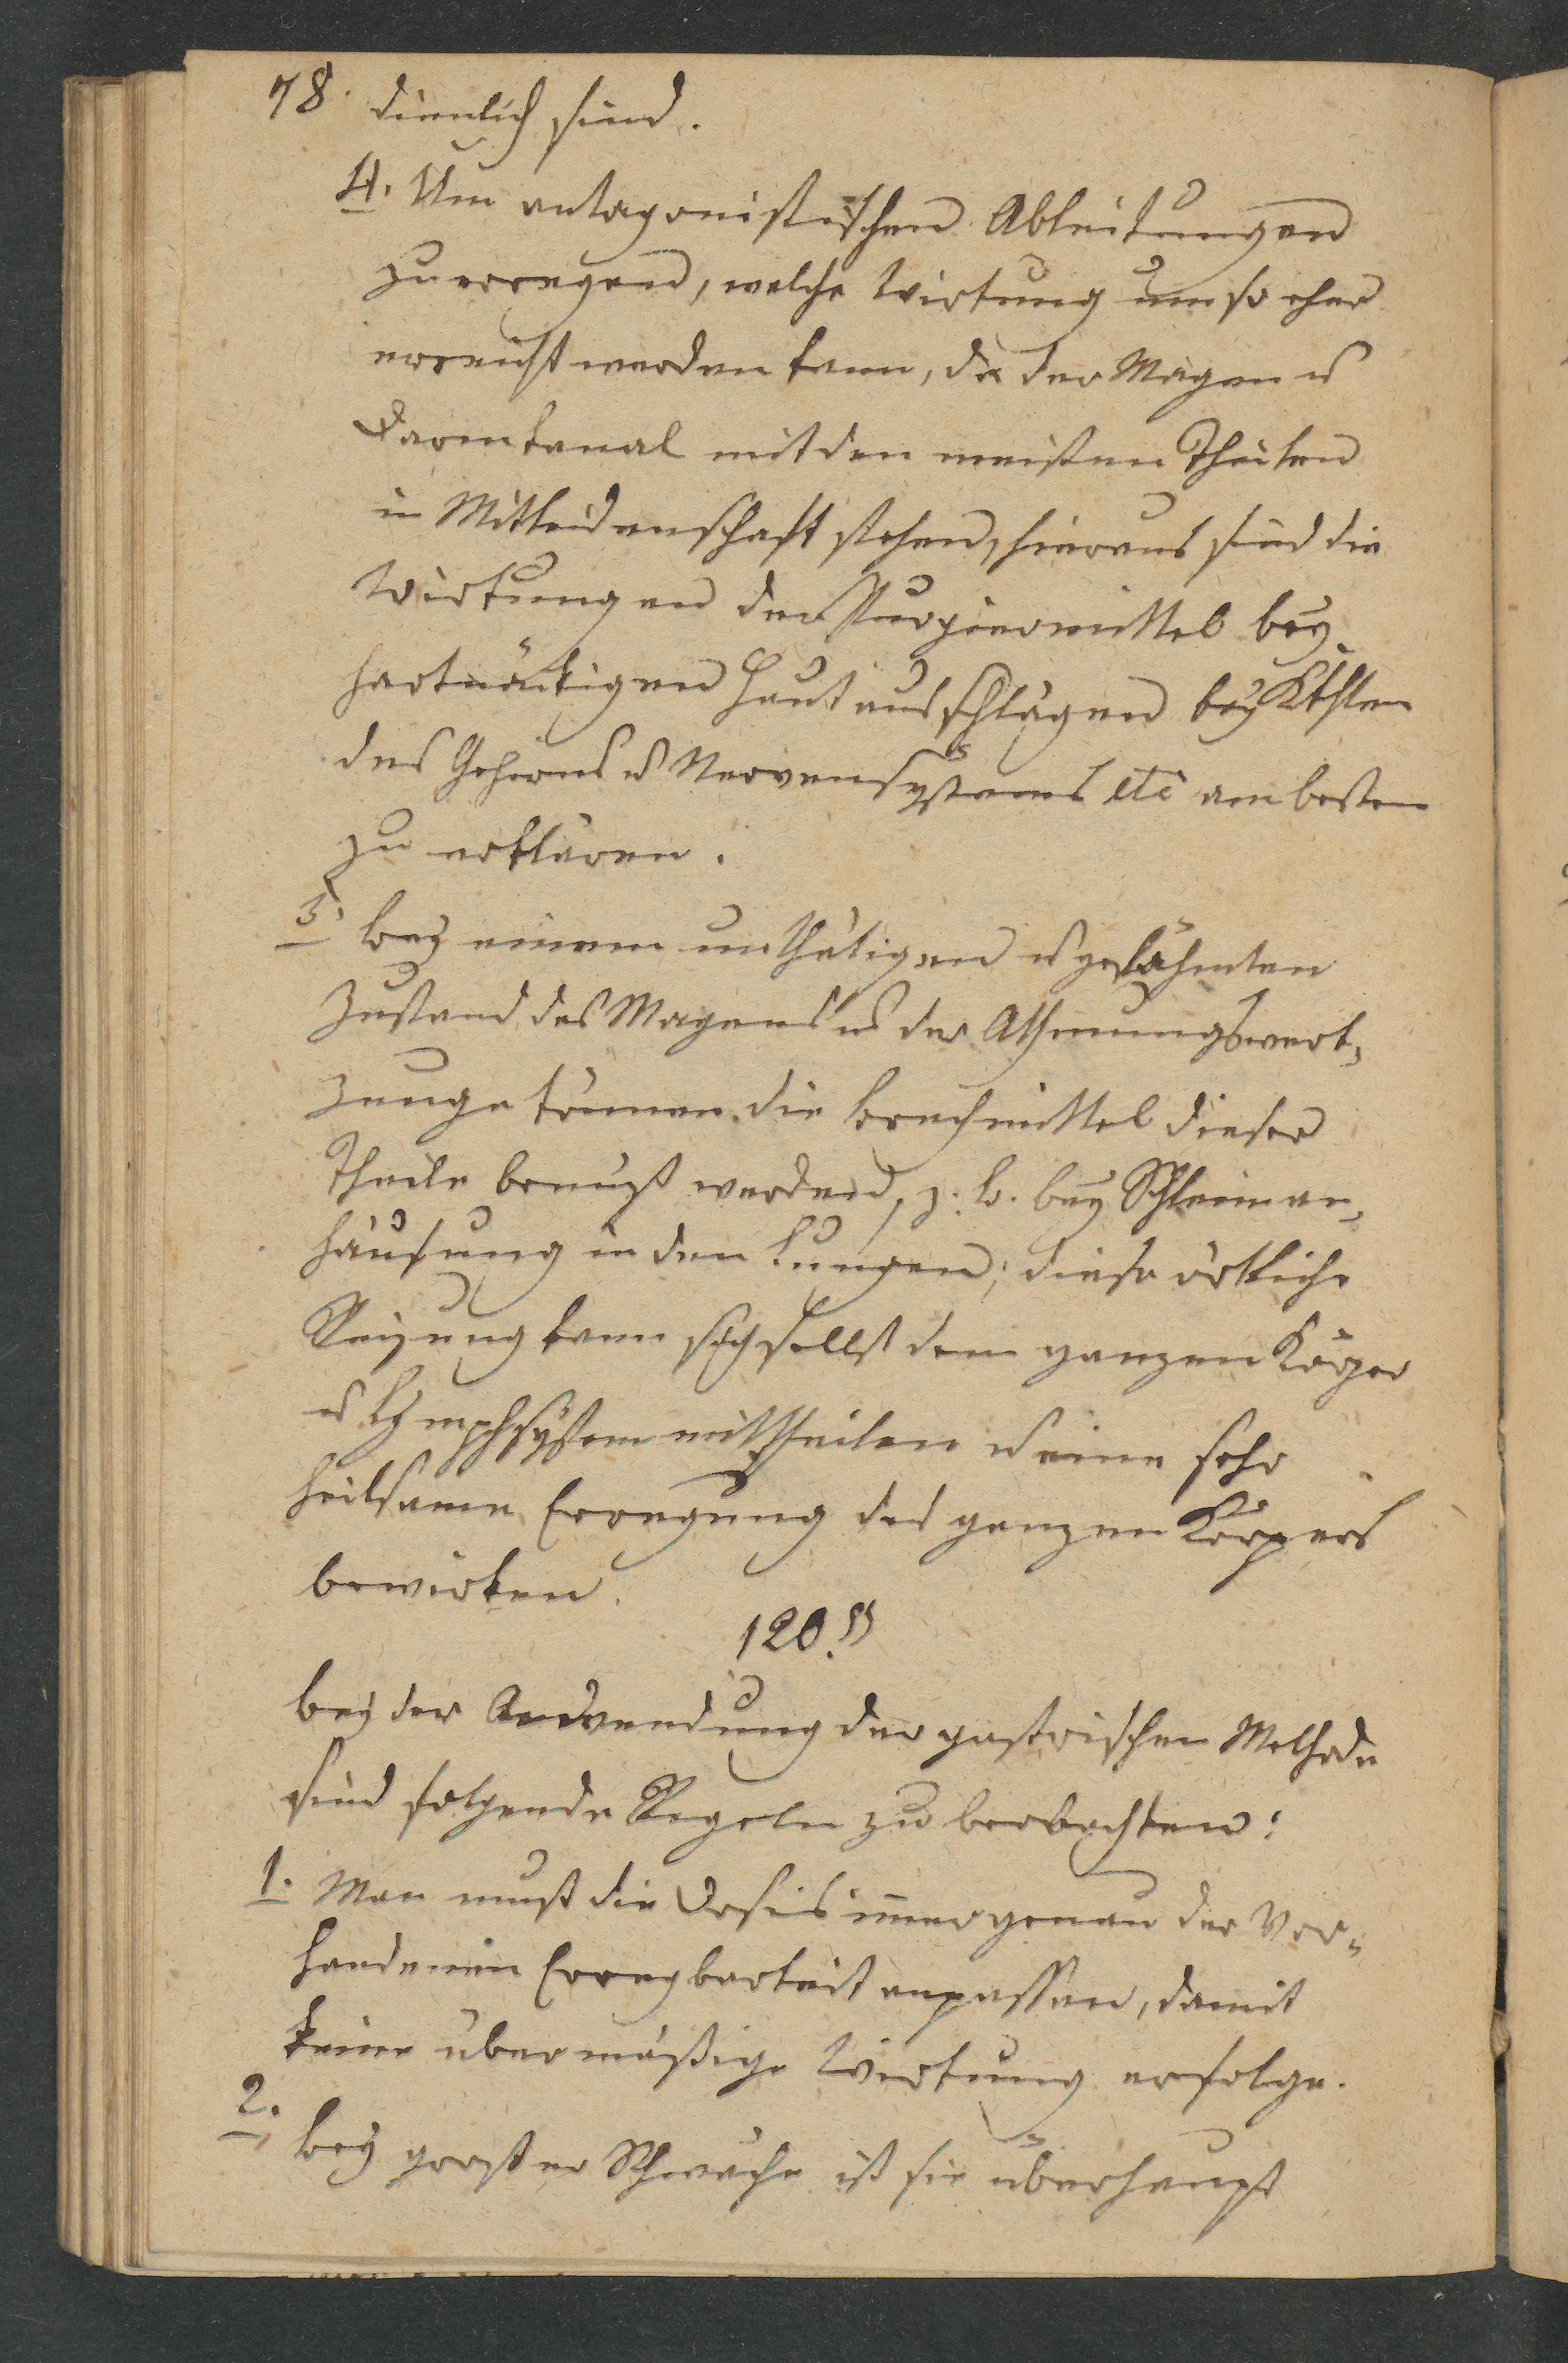 78. dienlich sind.
4. Um antagonistischen Ableitungen
zu erregend, welche Wirkung um so eher
erreicht werden kann, da der Magen u
Darmkanal mit den meisten Theilen
in Mitleidenschaft stehen, hieraus sind die
Wirkungen der Purgiermittel bey
hartnäkigen Hautausschlägen bey Kkhten
des Gehirns u Nervensÿstems etc am besten
zu erklären.
5. bey einem unthätigen u gelähmten
Zustand des Magens u der Athmungswerk,
zeuge können die brechmittel dieser
Theile benuzt werden, z. b. bey Schleiman,
häufung in den Lungen; diese örtliche
Reizung kann sich selbst dem ganzen Körper
u Lymphsÿstem mittheilen u eine sehr
heilsame Erregung des ganzen Körpers
bewirken.
120.§
bey der Anwendung der gastrischen Methode
sind folgende Regeln zu beobachten:
1. Man muß die Dosis im̅er genau der Vor„
handenen Erregbarkeit anpassen, damit
keine übermäßige Wirkung erfolge.
2. bey großer Schwäche ist sie überhaupt